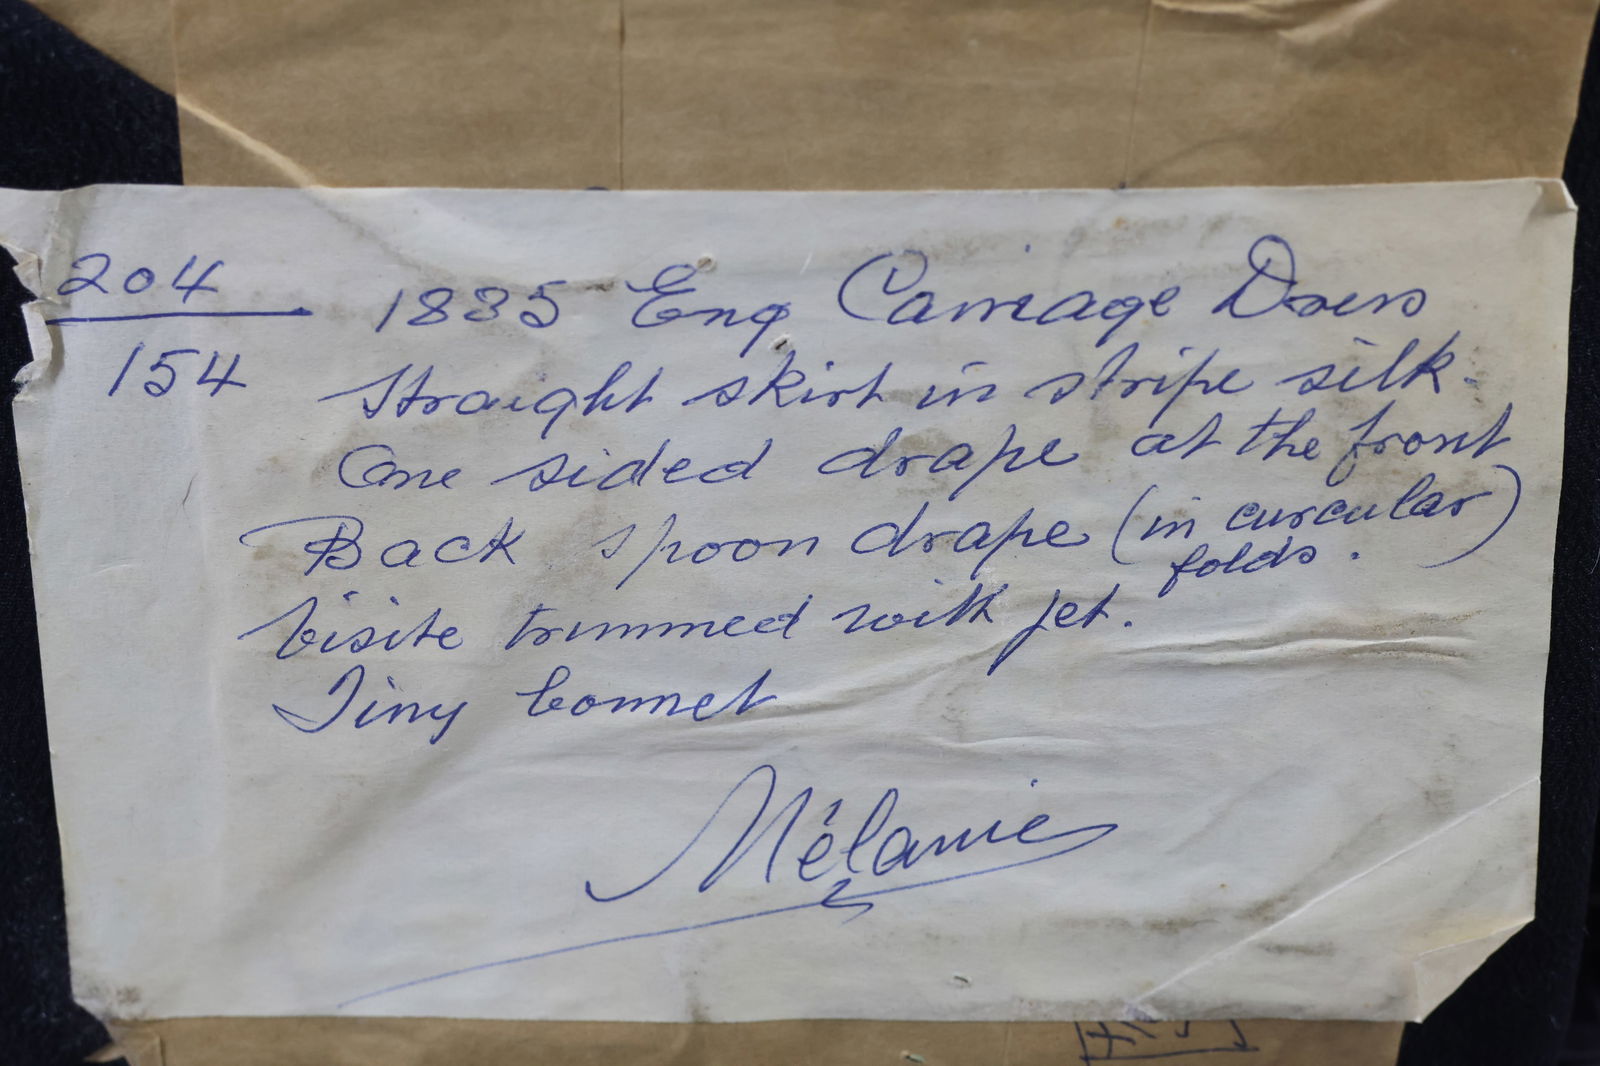 204
154
1885 Eng Carriage Dress
Straight skirt in stripe silk.
One sided drape at the front
Back spoon drape (in curcular)
folds.
Visite trimmed with jet.
Tiny bonnet
Mélanie